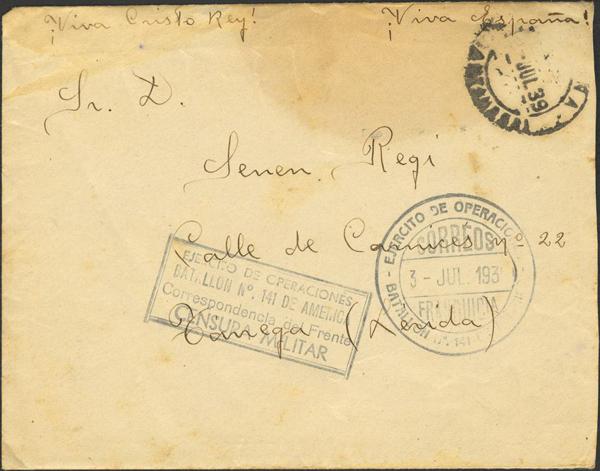 ¡Viva Cristo Rey! ¡Viva España!
JUL 39
Sr. D.
Senen Regi
Calle de Carnices nº 22
Tarrega (Lerida)
EJERCITO DE OPERACIONES
BATALLON Nº. 141 DE AMERICA
Correspondencia del Frente
CENSURA MILITAR
EJERCITO DE OPERACIO
CORREOS
3 - JUL. 193
FRANQUICIA
BATALLON Nº. 141